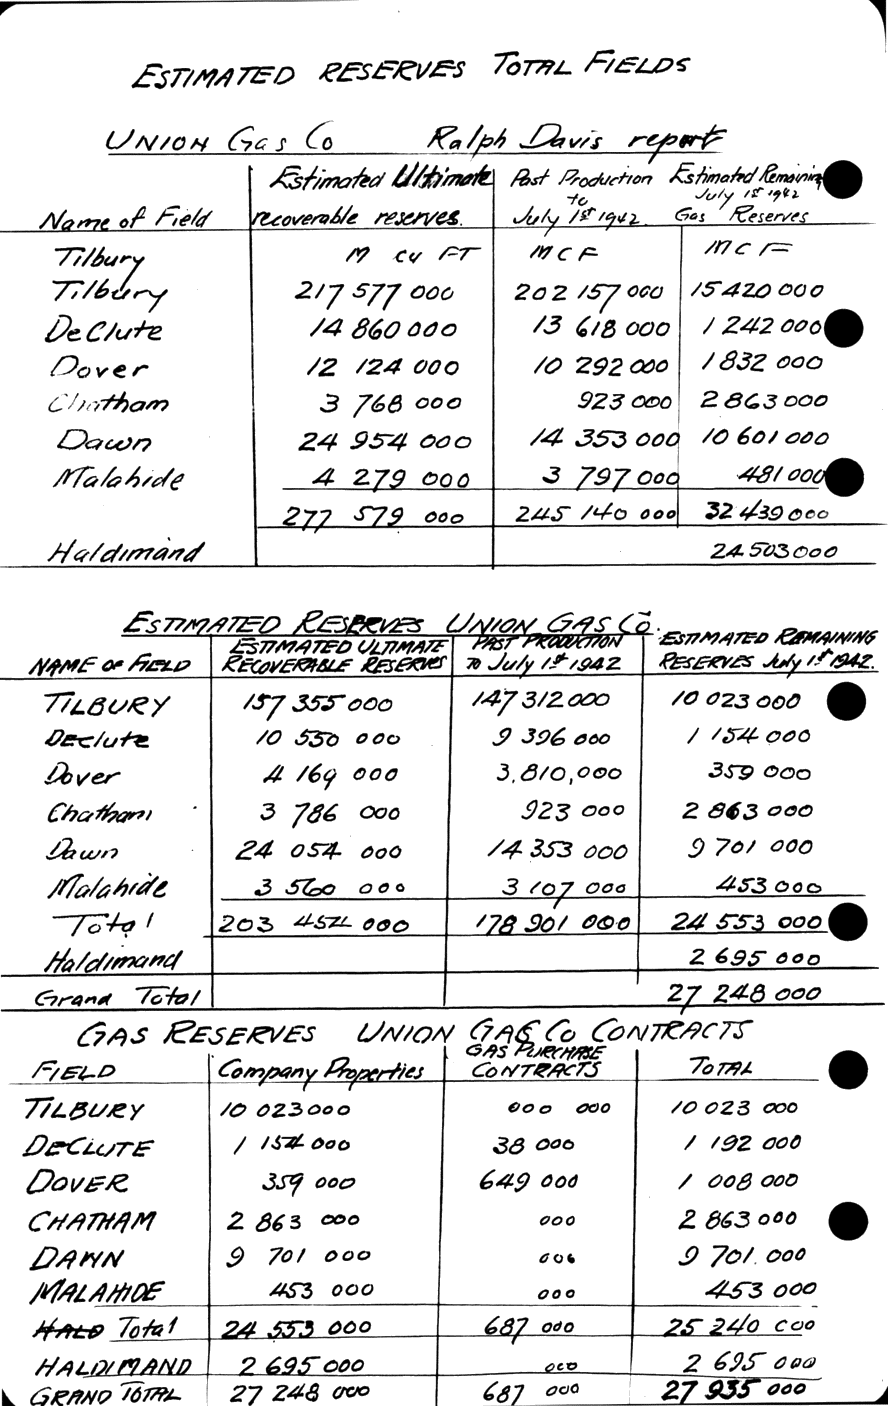 ESTIMATED RESERVES TOTAL FIELDS
UNION Gas Co Ralph Davis report
Name of Field Estimated Ultimate recoverable reserves. Past Production to July 1st 1942. Estimated Remaining July 1st 1942 Gas Reserves
Tilbury M CU FT MCF MCF
Tilbury 217 577 000 202 157 000 15 420 000
DeClute 14 860 000 13 618 000 1 242 000
Dover 12 124 000 10 292 000 1 832 000
Chatham 3 768 000 923 000 2 863 000
Dawn 24 954 000 14 353 000 10 601 000
Malahide 4 279 000 3 797 000 481 000
277 579 000 245 140 000 32 439 000
Haldimand 24 503 000
ESTIMATED RESERVES UNION GAS Co.
NAME OF FIELD ESTIMATED ULTIMATE RECOVERABLE RESERVES PAST PRODUCTION To July 1st 1942 ESTIMATED REMAINING RESERVES July 1st 1942.
TILBURY 157 355 000 147 312 000 10 023 000
DEClute 10 550 000 9 396 000 1 154 000
Dover 4 169 000 3,810,000 359 000
Chatham 3 786 000 923 000 2 863 000
Dawn 24 054 000 14 353 000 9 701 000
Malahide 3 560 000 3 107 000 453 000
Total 203 454 000 178 901 000 24 553 000
Haldimand 2 695 000
Grand Total 27 248 000
GAS RESERVES UNION GAS Co CONTRACTS
FIELD Company Properties GAS PURCHASE CONTRACTS TOTAL
TILBURY 10 023 000 000 000 10 023 000
DECLUTE 1 154 000 38 000 1 192 000
DOVER 359 000 649 000 1 008 000
CHATHAM 2 863 000 000 2 863 000
DAWN 9 701 000 000 9 701.000
MALAHIDE 453 000 000 453 000
HALD Total 24 553 000 687 000 25 240 000
HALDIMAND 2 695 000 000 2 695 000
GRAND TOTAL 27 248 000 687 000 27 935 000